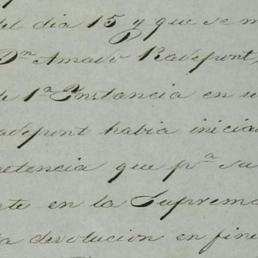 del dia 15 y que se m
Dn Amado Ravepont,
de 1a Instancia en u
avepont habia inicia
petencia que pa su
te en la Suprema
la devolucion en fine